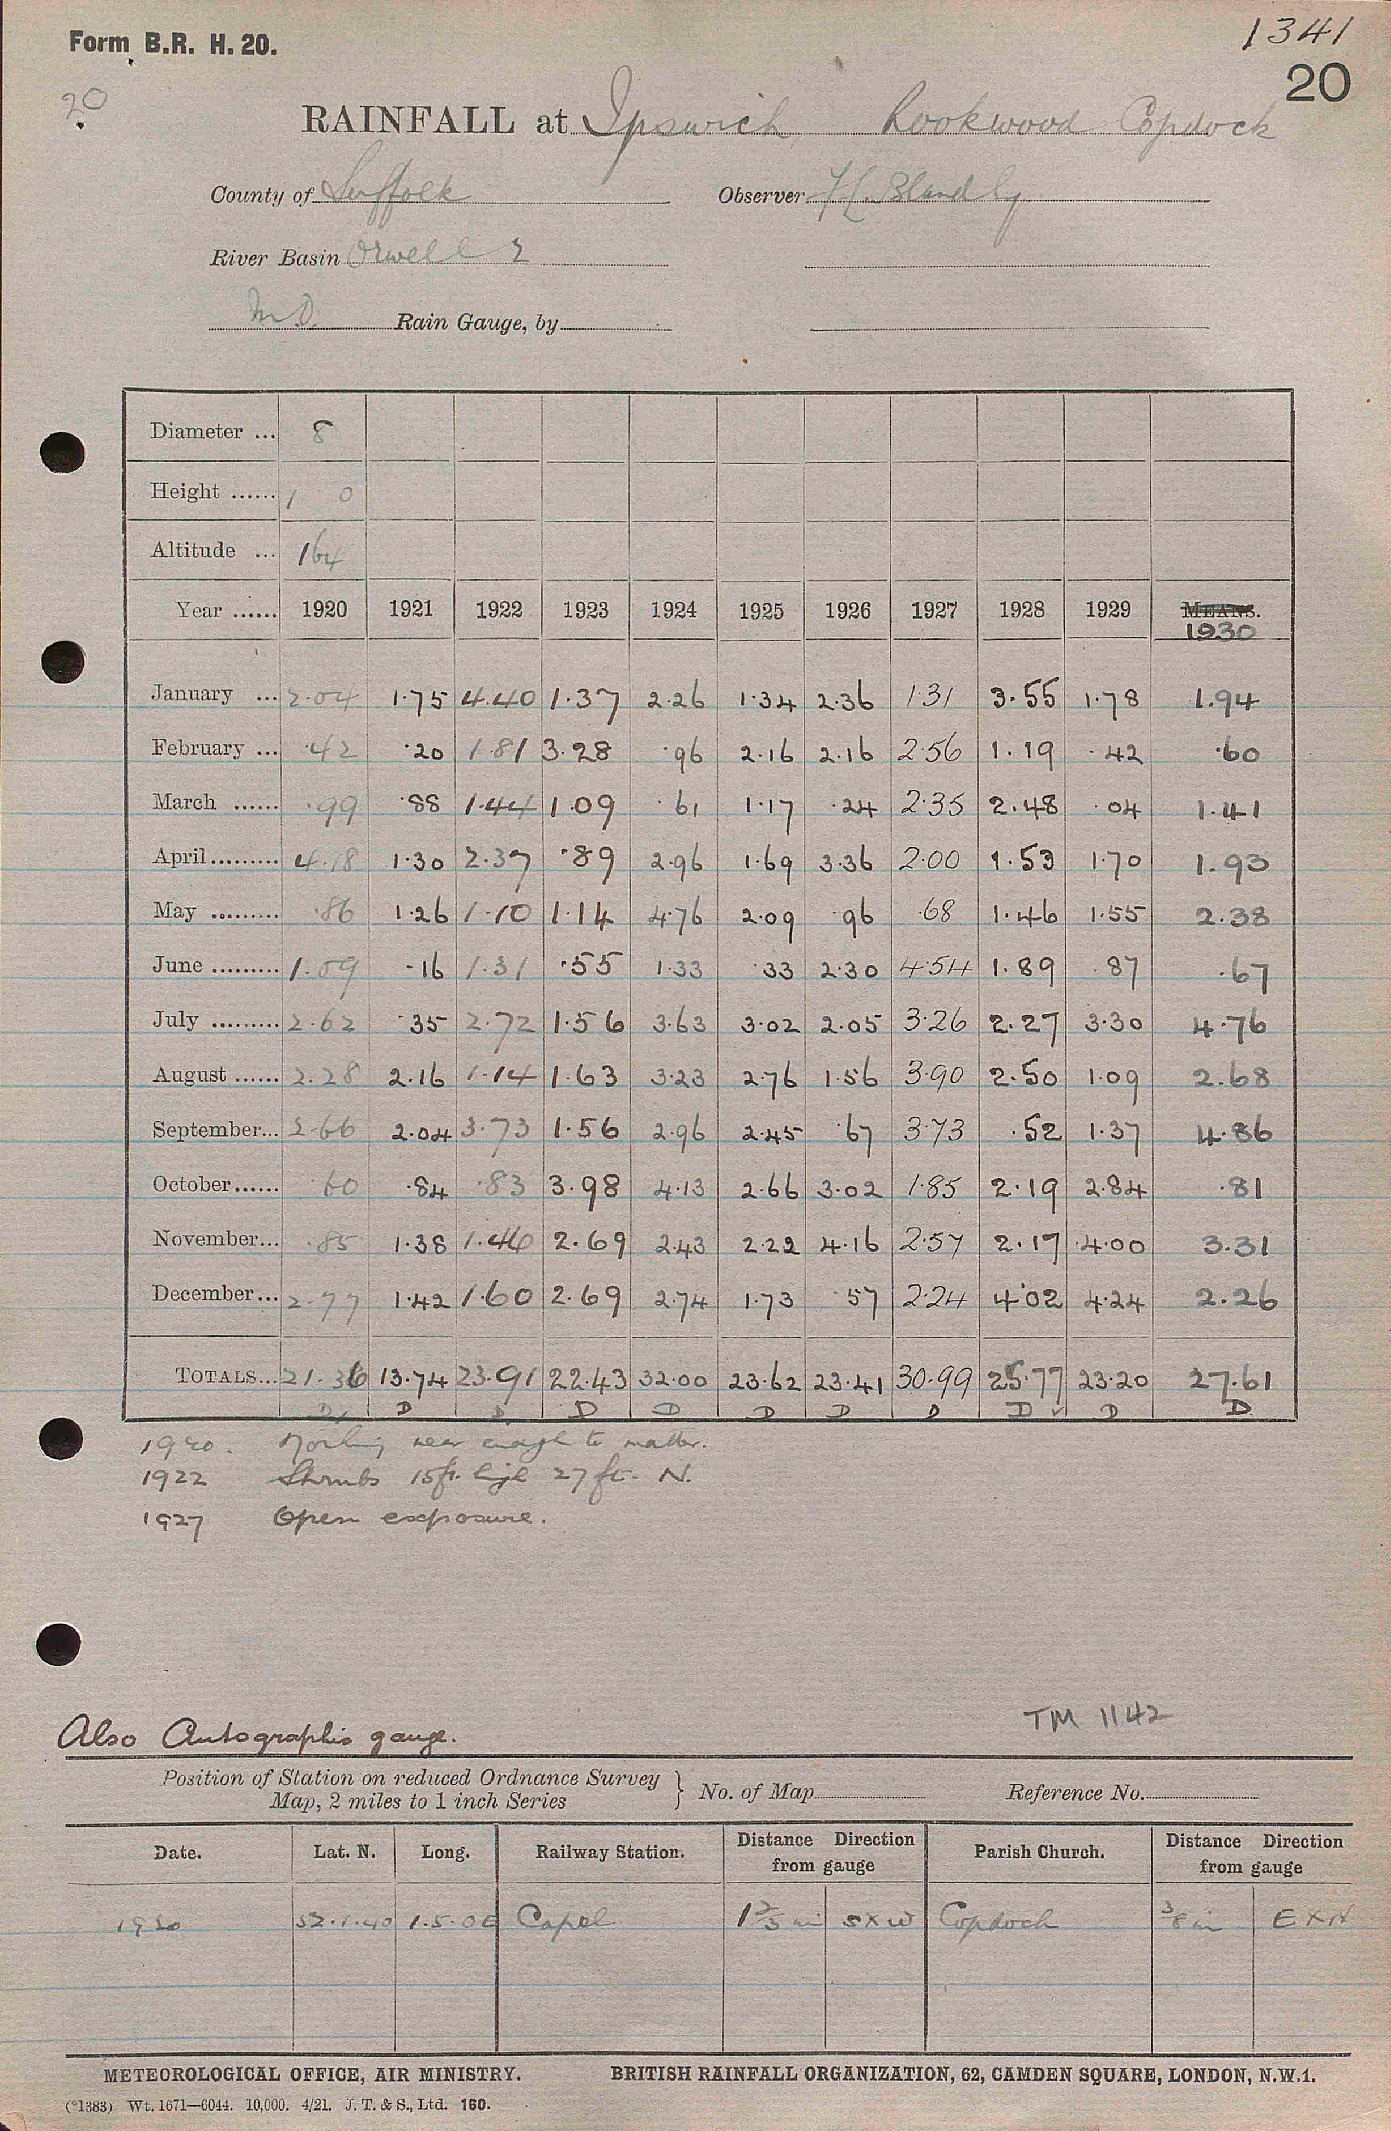 Form B.R. H. 20.
1341
20
20
RAINFALL at Ipswich Rookwood Copdock
County of Suffolk Observer
River Basin Orwell 2
M.O. Rain Gauge, by
Diameter ... 8
Height ...... 1 0
Altitude ... 164
Year ...... 1920 1921 1922 1923 1924 1925 1926 1927 1928 1929 MEANS. 1930
January ... 2.04 1.75 4.40 1.37 2.26 1.34 2.36 1.31 3.55 1.78 1.94
February ... .42 .20 1.81 3.28 .96 2.16 2.16 2.56 1.19 .42 .60
March ...... .99 .88 1.44 1.09 .61 1.17 .24 2.35 2.48 .04 1.41
April ......... 4.18 1.30 2.37 .89 2.96 1.69 3.36 2.00 1.53 1.70 1.93
May ......... .86 1.26 1.10 1.14 4.76 2.09 .96 .68 1.46 1.55 2.38
June ......... 1.09 .16 1.31 .55 1.33 .33 2.30 4.54 1.89 .87 .67
July ......... 2.62 .35 2.72 1.56 3.63 3.02 2.05 3.26 2.27 3.30 4.76
August ...... 2.28 2.16 1.14 1.63 3.23 2.76 1.56 3.90 2.50 1.09 2.68
September... 2.66 2.04 3.73 1.56 2.96 2.45 .67 3.73 .52 1.37 4.86
October ...... .60 .84 .83 3.98 4.13 2.66 3.02 1.85 2.19 2.84 .81
November... .85 1.38 1.46 2.69 2.43 2.22 4.16 2.57 2.17 4.00 3.31
December... 2.77 1.42 1.60 2.69 2.74 1.73 .57 2.24 4.02 4.24 2.26
TOTALS... 21.36 13.74 23.91 22.43 32.00 23.62 23.41 30.99 25.77 23.20 27.61
D D D D D D D D D D D
1920. Nothing near enough to matter.
1922 Shrubs 15ft. high 27ft. N.
1927 Open exposure.
TM 1142
Also Autographic gauge.
Position of Station on reduced Ordnance Survey Map, 2 miles to 1 inch Series } No. of Map Reference No.
Date. Lat. N. Long. Railway Station. Distance Direction from gauge Parish Church. Distance Direction from gauge
1920 52.1.40 1.5.0E Capel 1 2/3 mi SXW Copdock 3/8 m EXN
METEOROLOGICAL OFFICE, AIR MINISTRY. BRITISH RAINFALL ORGANIZATION, 62, CAMDEN SQUARE, LONDON, N.W.1.
(*1383) Wt. 1671—6044. 10,000. 4/21. J. T. & S., Ltd. 160.